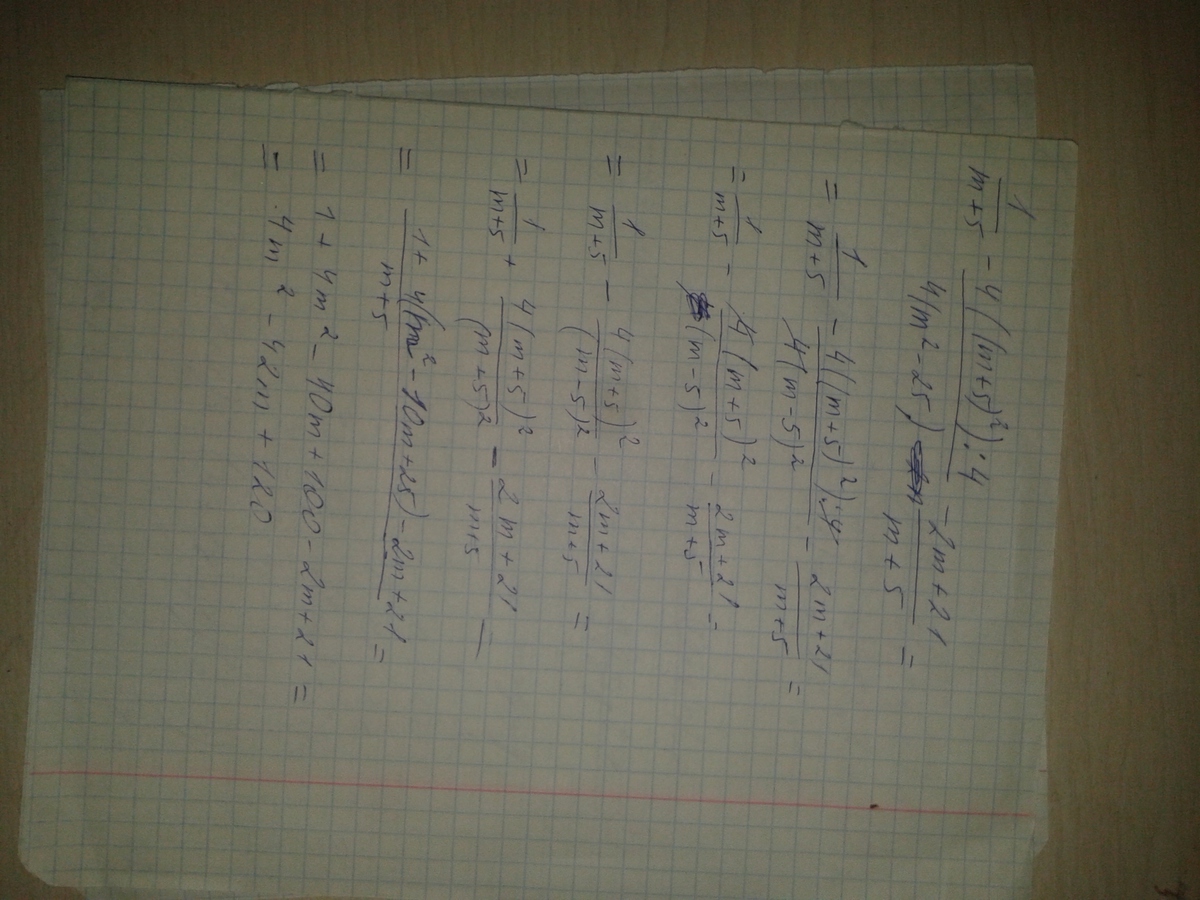 1/(m+5) - 4((m+5)²):4 / 4(m²-25) - 2m+21 / m+5 =
= 1/(m+5) - 4((m+5)²):4 / 4(m-5)² - 2m+21 / m+5 =
= 1/(m+5) - 4(m+5)² / (m-5)² - 2m+21 / m+5 =
= 1/(m+5) - 4(m+5)² / (m-5)² - 2m+21 / m+5 =
= 1/(m+5) + 4(m+5)² / (m+5)² - 2m+21 / m+5 =
= 1+4(m²-10m+25)-2m+21 / m+5 =
= 1+4m²-40m+100-2m+21=
= 4m²-42m+120